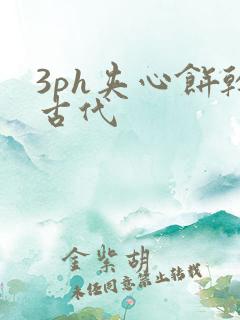 3ph夹心餅乾
古代
金紫胡
未经同意禁止转载